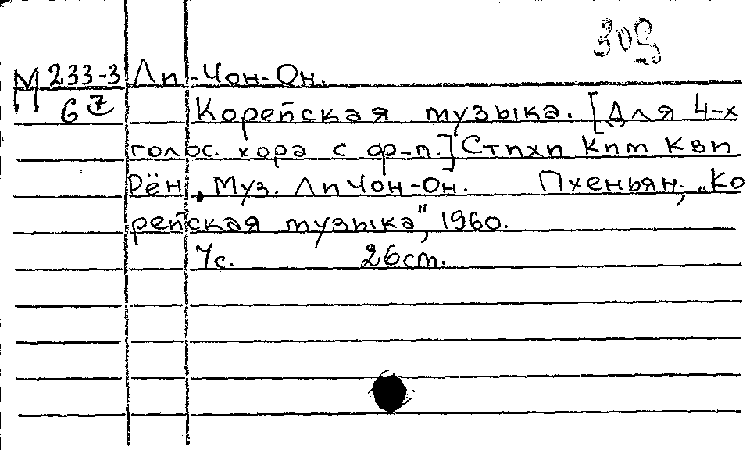 309
М 233-3 Ли-Чон-Он.
П 67 Корейская музыка. [Для 4-х
голос. хора с ф-п.] Стихи Ким Кви
Рён, Муз. Ли Чон-Он. Пхеньян, „Ко
рейская музыка", 1960.
7с. 26ст.